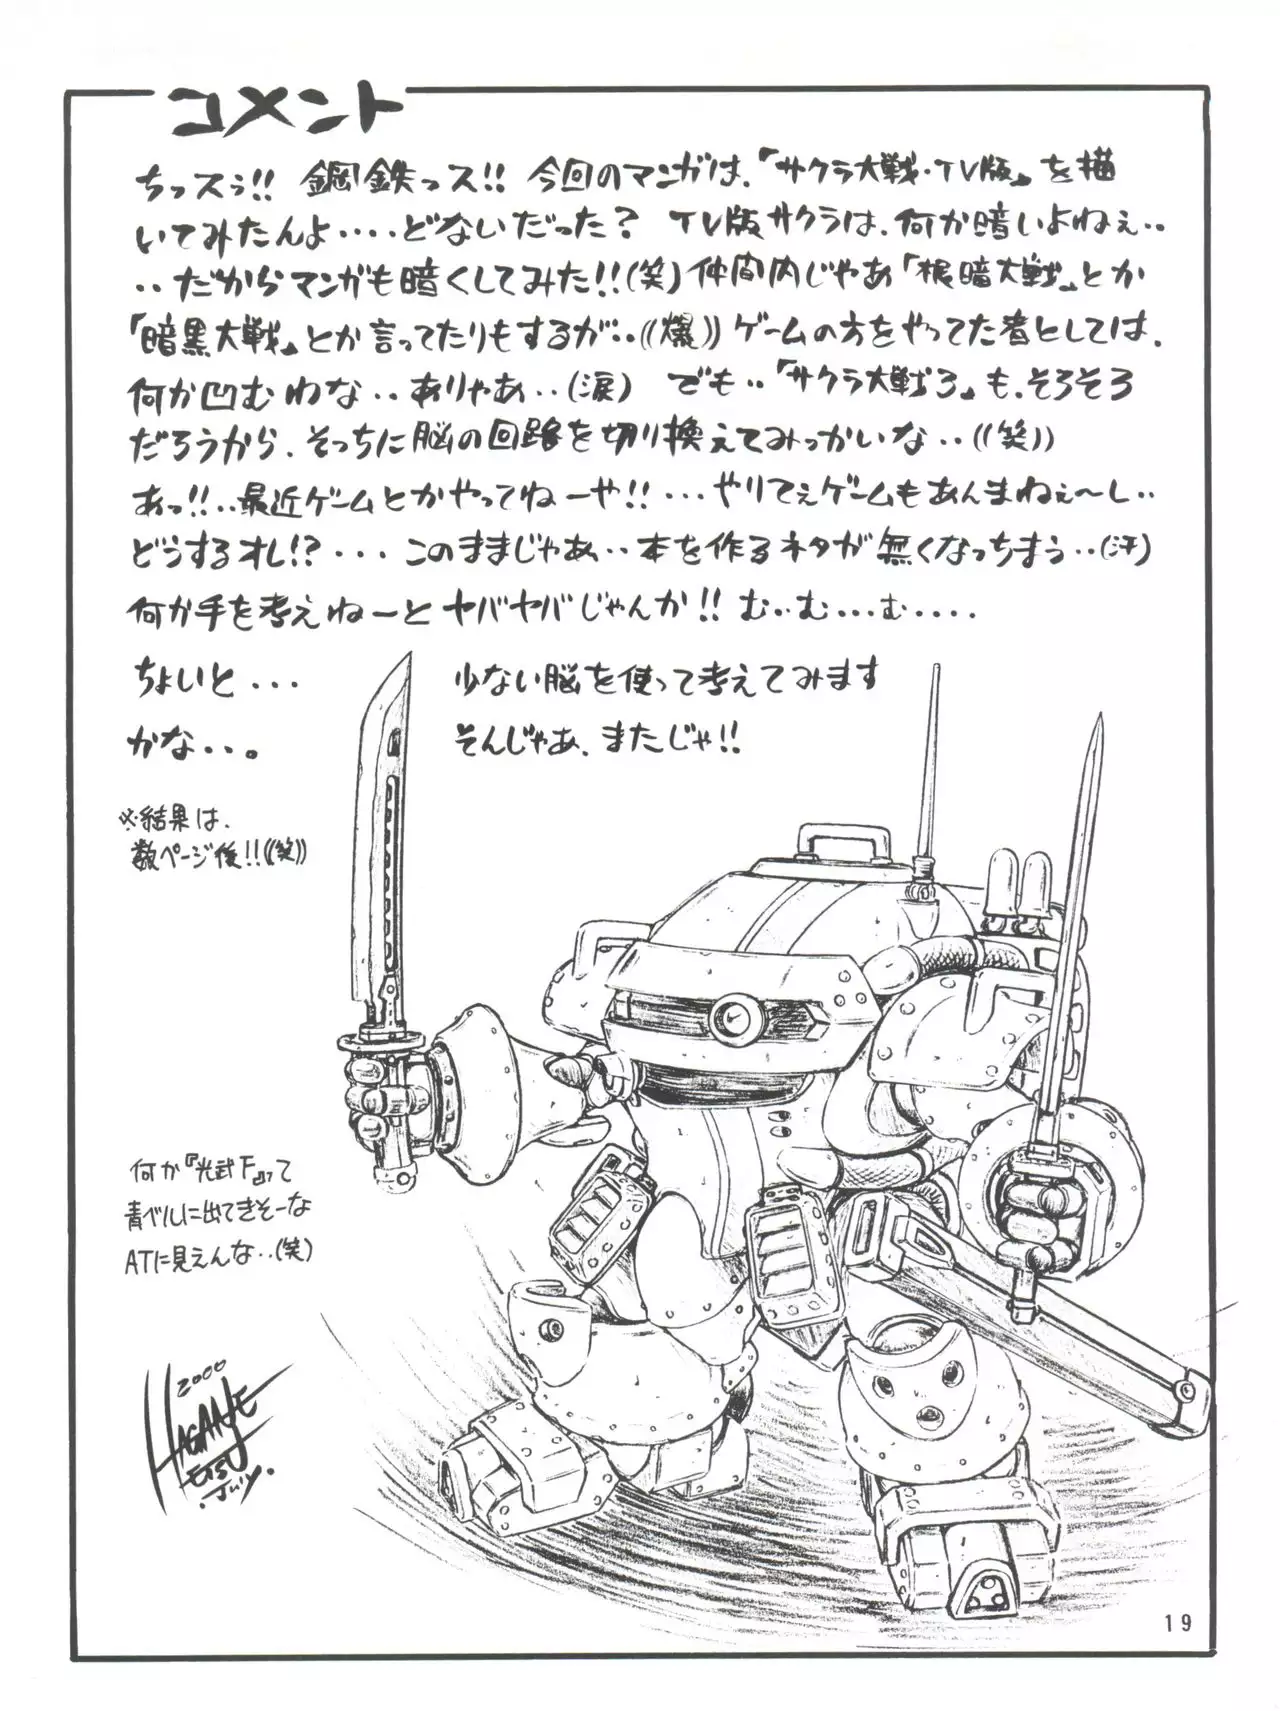 コメント
ちっスぅ!! 鋼鉄っス!! 今回のマンガは、「サクラ大戦・TV版」を描
いてみたんよ‥‥どないだった? TV版サクラは、何か暗いよねぇ‥
‥だからマンガも暗くしてみた!!(笑)仲間内じゃあ「根暗大戦」とか
「暗黒大戦」とか言ってたりもするが‥((爆))ゲームの方をやってた者としては、
何か凹むわな‥ありゃあ‥(涙) でも‥「サクラ大戦3」も、そろそろ
だろうから、そっちに脳の回路を切り換えてみっかいな‥((笑))
あっ!!‥最近ゲームとかやってねーや!!…やりてぇゲームもあんまねぇ〜し‥
どうするオレ!?…このままじゃあ‥本を作るネタが無くなっちまう‥(汗)
何か手を考えねーとヤバヤバじゃんか!! む‥む…む‥‥
ちょいと… 少ない脳を使って考えてみます
かな‥。 そんじゃあ、またじゃ!!
※結果は、
数ページ後!!((笑))
何か『光武F』って
青ベルに出てきそーな
ATに見えんな‥(笑)
2000
HAGANE
ETSU
July.
19